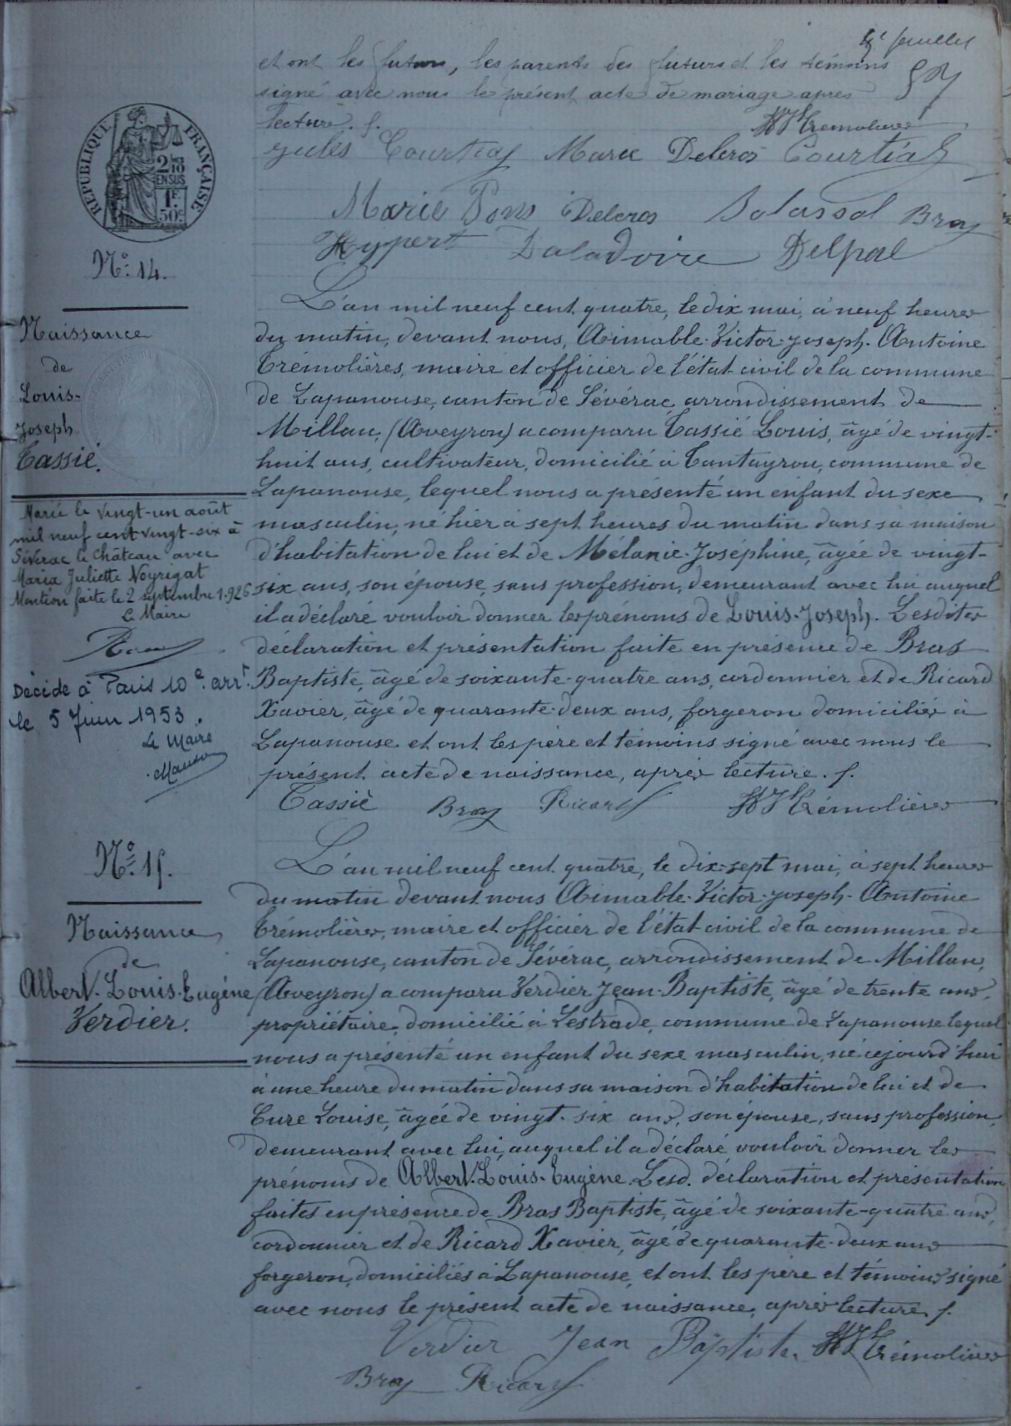 5e feuillet
et ont les futurs, les parents des futurs et les témoins
signé avec nous le présent acte de mariage après
lecture. /.
Trémolières
Jules Courtial Marie Delcros Courtial
Marie Pons Delcros Salassol Bras
Hyppert Daladoire Delpal
RÉPUBLIQUE FRANÇAISE
2/10
EN SUS
1F
50c
No. 14.
Naissance
de
Louis-
Joseph
Cassié.
Marié le vingt-un août
mil neuf cent vingt-six à
Sévérac le Château avec
Maria Juliette Veyrigat
Mention faite le 2 septembre 1926
Le Maire
Décidé à Paris 10e arrt
le 5 Juin 1953.
Le Maire
L'an mil neuf cent quatre, le dix mai, à neuf heures
du matin, devant nous, Aimable-Victor-Joseph-Antoine
Trémolières, maire et officier de l'état civil de la commune
de Lapanouse, canton de Sévérac, arrondissement de
Millau, (Aveyron) a comparu Cassié Louis, âgé de vingt-
huit ans, cultivateur, domicilié à Tantayrou, commune de
Lapanouse, lequel nous a présenté un enfant du sexe
masculin, né hier à sept heures du matin dans sa maison
d'habitation de lui et de Mélanie-Joséphine, âgée de vingt-
six ans, son épouse, sans profession, demeurant avec lui auquel
il a déclaré vouloir donner les prénoms de Louis-Joseph. Lesdites
déclaration et présentation faite en présence de Bras
Baptiste, âgé de soixante-quatre ans, cordonnier et de Ricard
Xavier, âgé de quarante-deux ans, forgeron domiciliés à
Lapanouse et ont les père et témoins signé avec nous le
présent acte de naissance, après lecture. /.
Cassié Bras Ricard Trémolières
No. 15.
Naissance
de
Albert-Louis-Eugéne
Verdier.
L'an mil neuf cent quatre, le dix-sept mai, à sept heures
du matin devant nous Aimable-Victor-Joseph-Antoine
Trémolières, maire et officier de l'état civil de la commune de
Lapanouse, canton de Sévérac, arrondissement de Millau,
(Aveyron) a comparu Verdier Jean-Baptiste, âgé de trente ans,
propriétaire, domicilié à Lestrade, commune de Lapanouse lequel
nous a présenté un enfant du sexe masculin, né cejourd'hui
à une heure du matin dans sa maison d'habitation de lui et de
Cure Louise, âgée de vingt-six ans, son épouse, sans profession,
demeurant avec lui, auquel il a déclaré vouloir donner les
prénoms de Albert-Louis-Eugène. Lesd. déclaration et présentation
faites en présence de Bras Baptiste, âgé de soixante-quatre ans,
cordonnier et de Ricard Xavier, âgé de quarante-deux ans
forgeron, domiciliés à Lapanouse, et ont les père et témoins signé
avec nous le présent acte de naissance, après lecture. /.
Verdier Jean Baptiste Trémolières
Bras Ricard